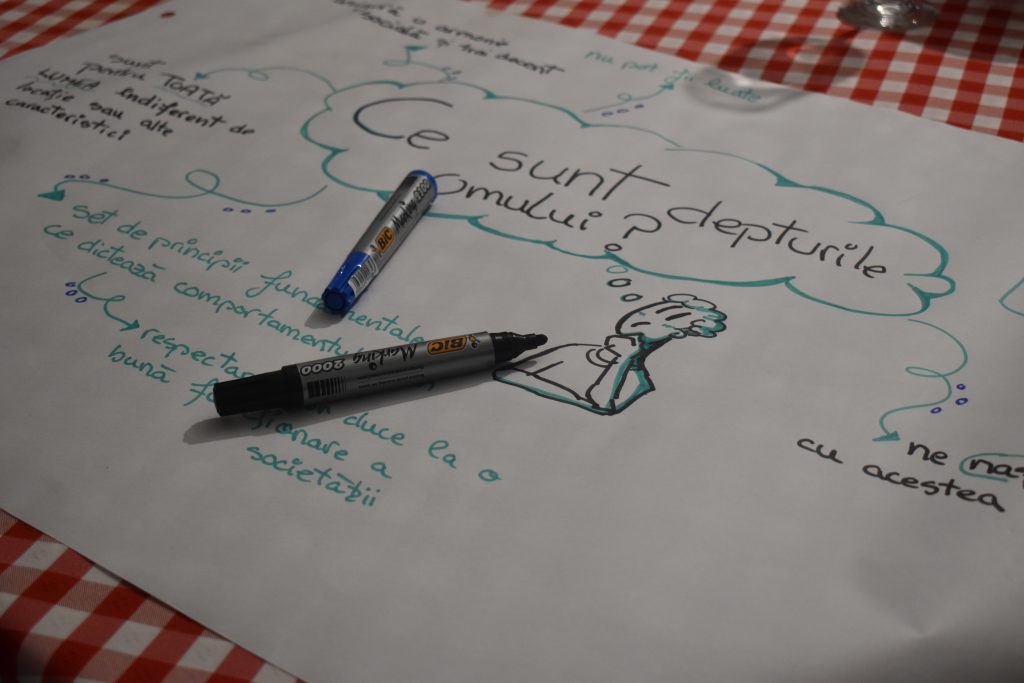 o armonie
socială și trai decent
nu pot fi luate
sunt
pentru TOATĂ
LUMEA indiferent de
locație sau alte
caracteristici
Ce sunt depturile
omului?
set de principii fundamentale
ce dictează comportamentul
respectarea duce la o
bună funcționare a
societății
ne
cu acestea
BIC Marking 2000
BIC Marking 2000